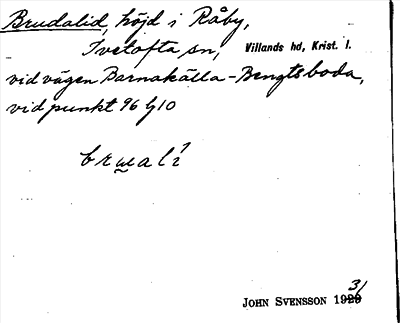 Brudalid, höjd i Råby,
Ivetofta sn, Villands hd, Krist. l.
vid vägen Barnakälla-Bengtsboda,
vid punkt 96 G10
JOHN SVENSSON 1931